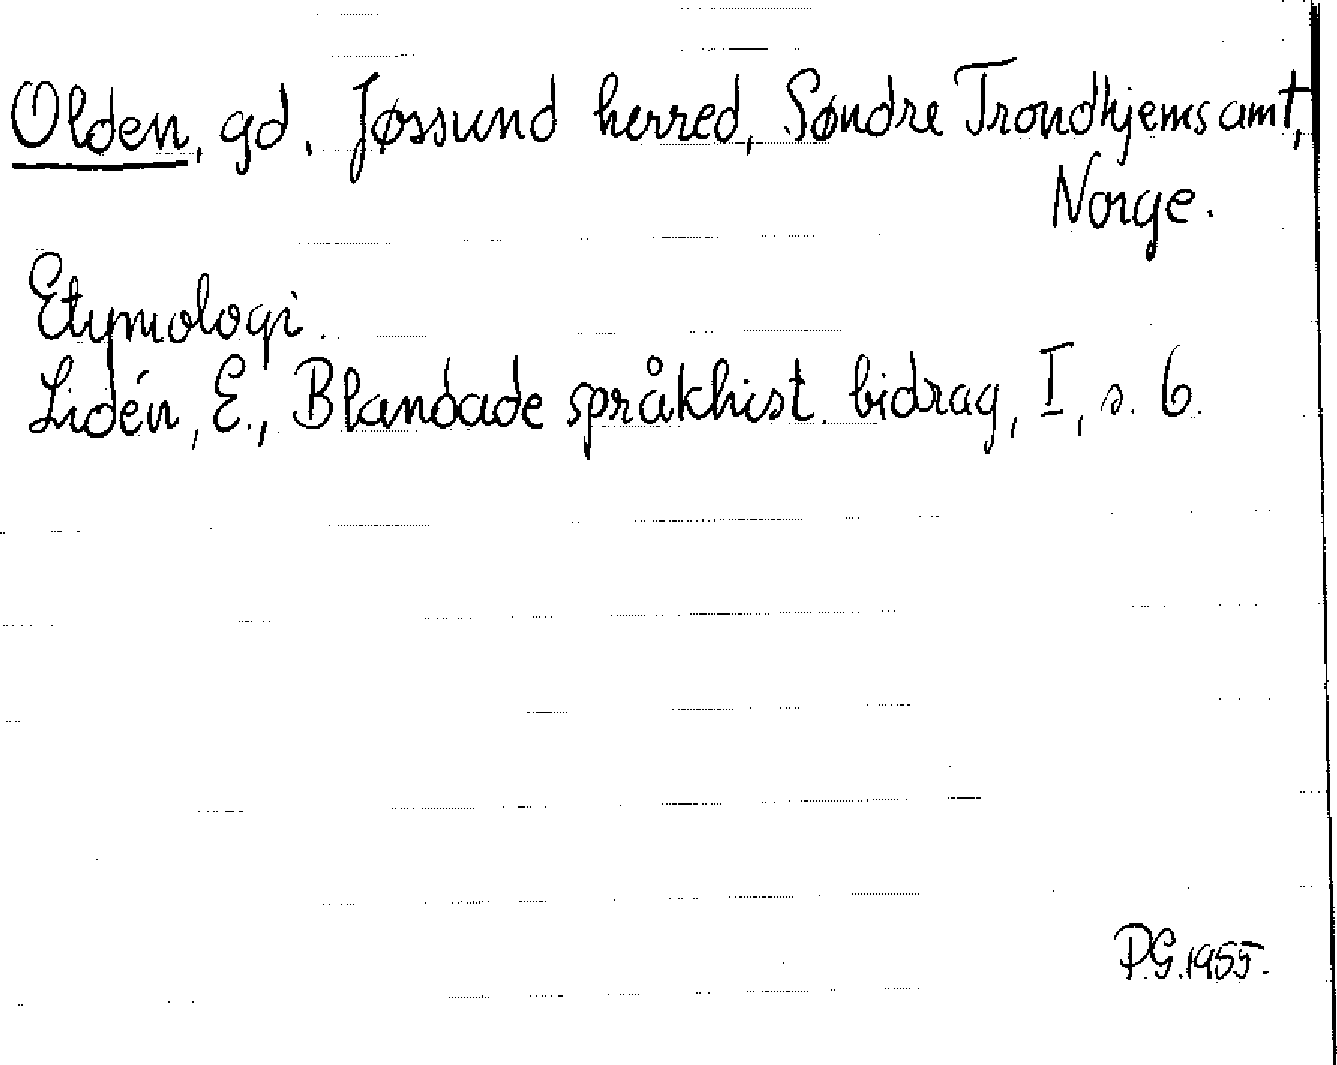 Olden, gd. Jøssund herred, Søndre Trondhjems amt,
Norge.
Etymologi.
Lidén, E., Blandade språkhist. bidrag, I, s. 6.
P.G. 1955.